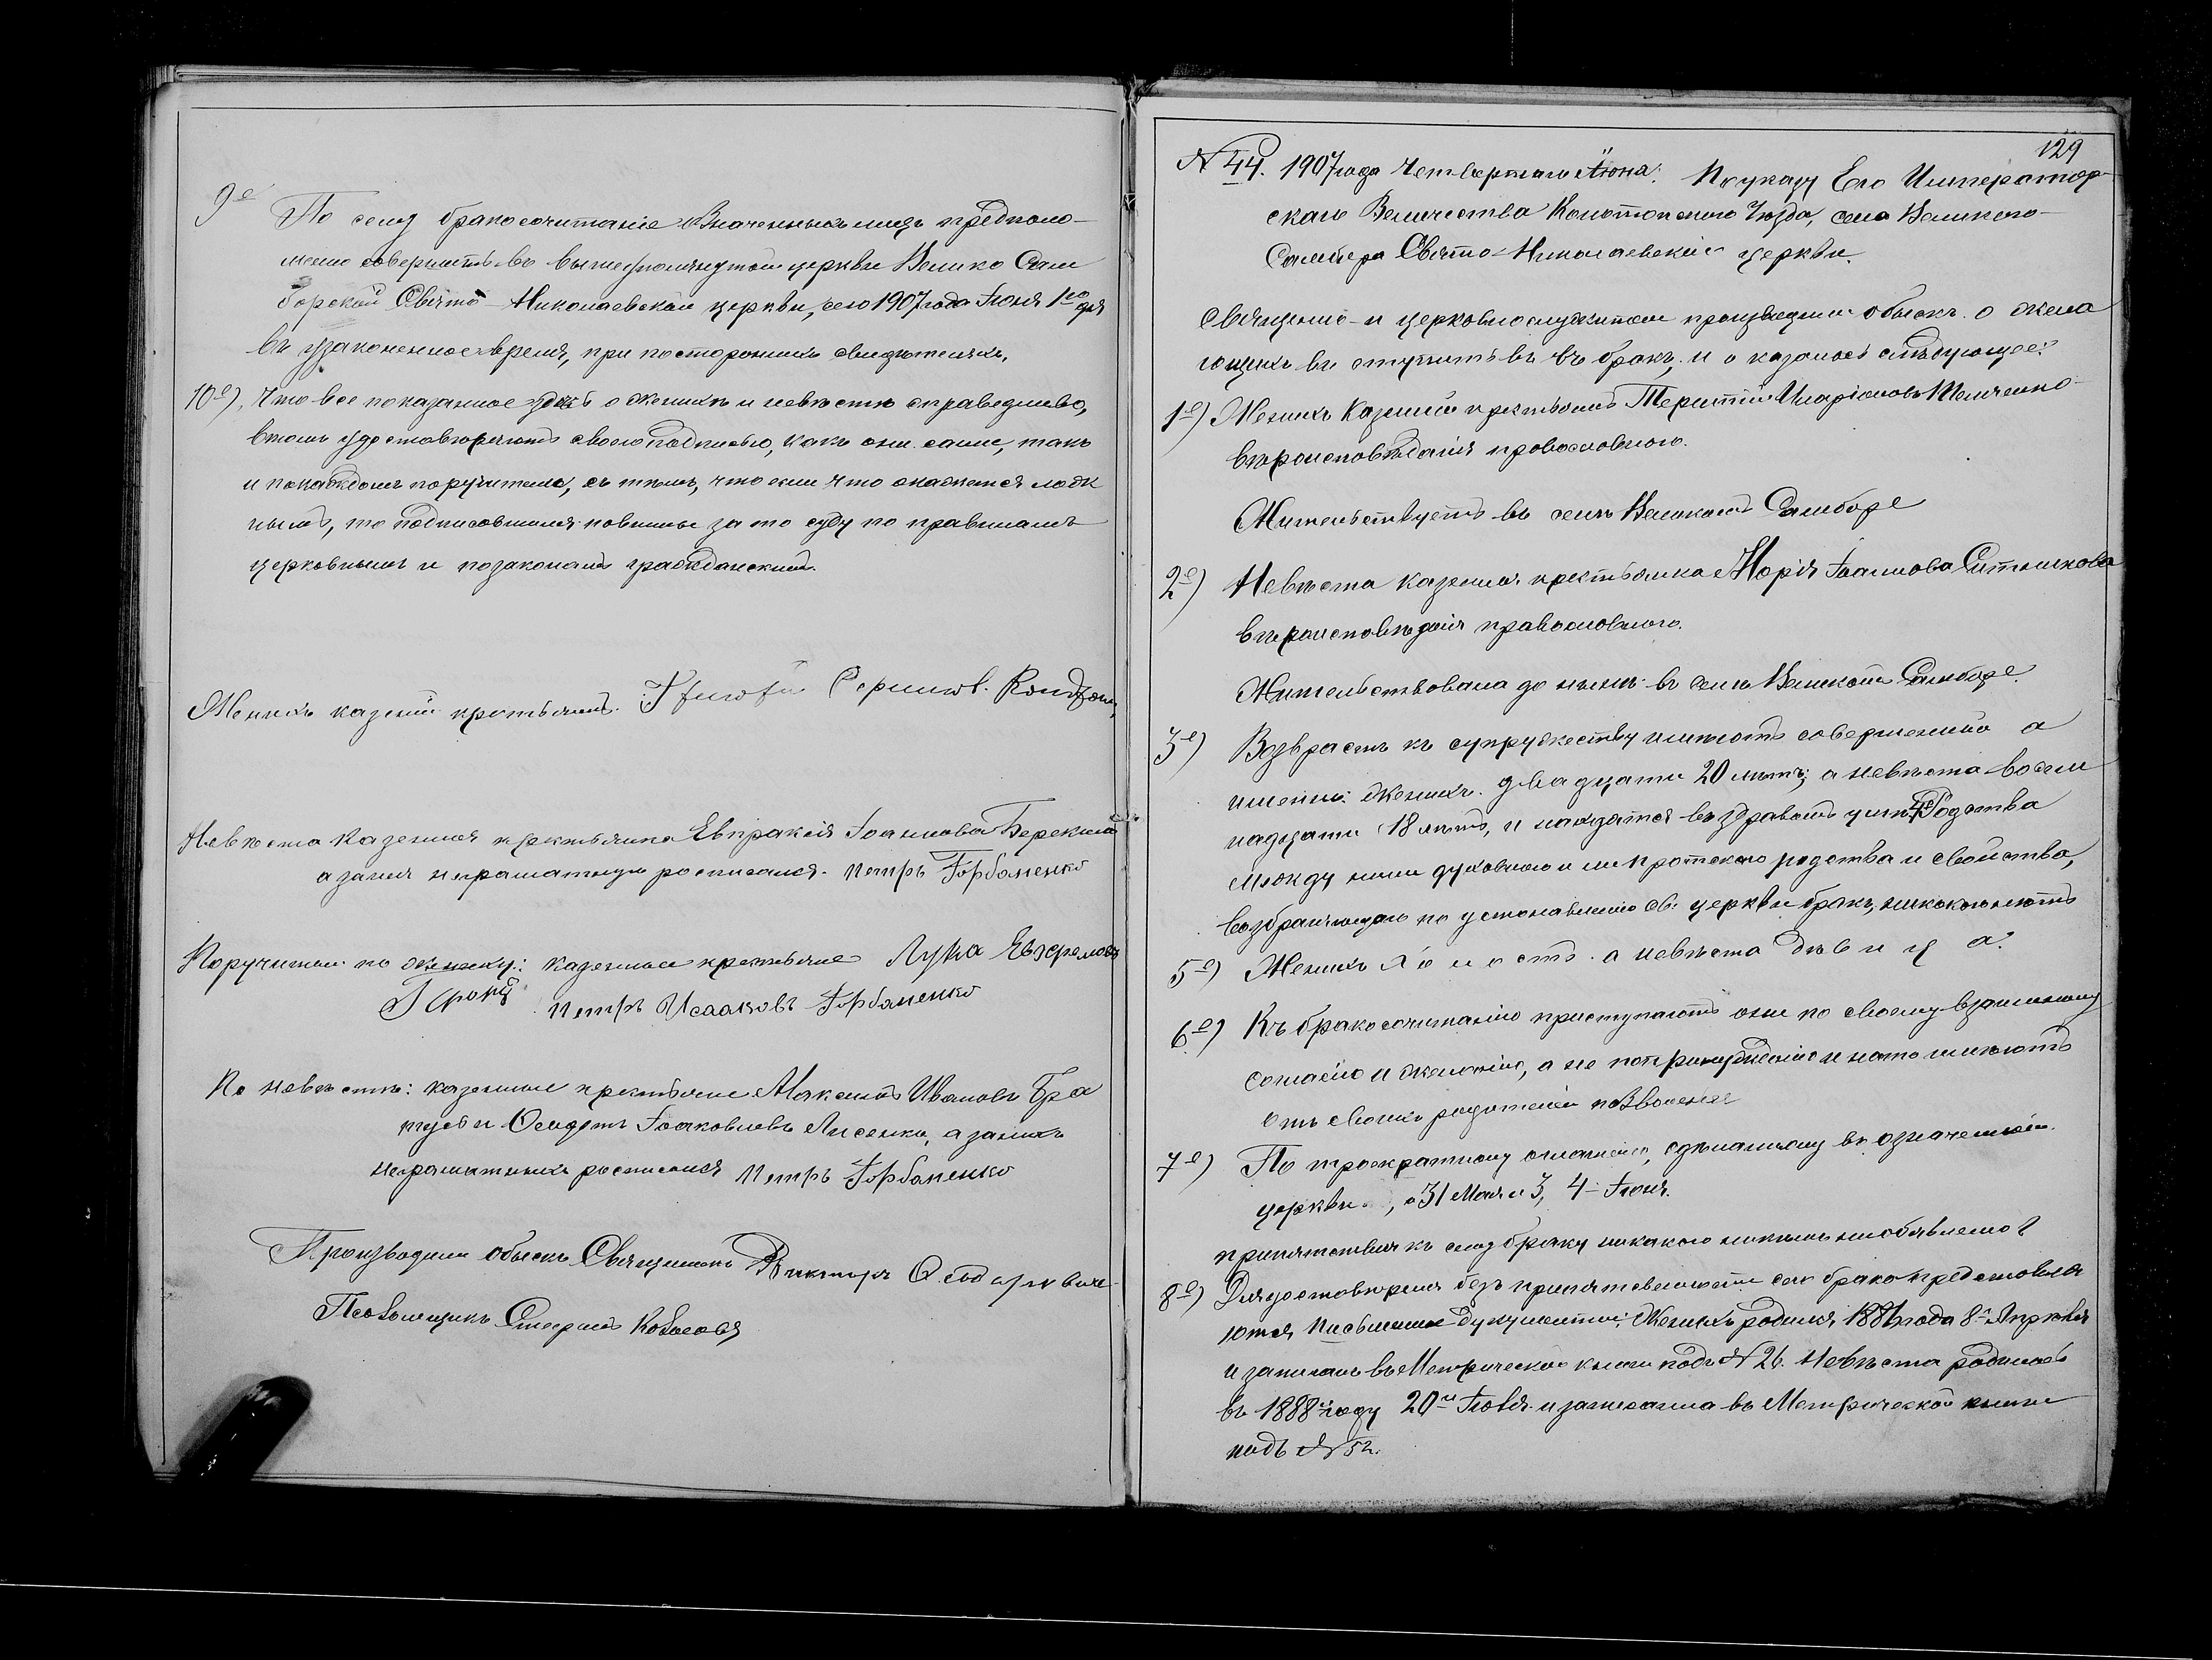 9е По сему бракосочитаніе означенныхъ лицъ предполо-
жено совершить въ вышеупомянутой церкви Велико Сам
борской Свято-Николаевской церкви, сего 1907 года Іюня 1го дня
въ узаконенное время, при постороннихъ свидѣтеляхъ,
10е). Что все показанное здѣсь о женихѣ и невѣстѣ справедливо,
втомъ удостовѣряютъ своею подписью, какъ они сами, такъ
и покаждомъ поручители, съ тѣмъ, что если что окажется лож
нымъ, то подписавшіися повинны за то суду по правиламъ
церковнымъ и позаконамъ гражданскимъ.
Женихъ казенный крестьянинъ.
Невѣста казенная крестьянка Евпраксія Іоаннова
а занея неграматную росписался. Петръ Горбаненко
Поручители по жениху: казенные крестьяне Лука Евфремовъ
Петръ Исааковъ Горбаненко
По невѣстѣ: казенные крестьяне Максимъ Ивановъ Бра
тусь и Іоаковлевъ Лисенко, а занихъ
неграматныхъ росписался Петръ Горбаненко
Производили обыскъ Священникъ Викторъ
Псаломщикъ
129
N 44. 1907 года Четвертаго Іюня. По указу Его Император-
скаго Величества Конотопскаго Уѣзда, села Великого-
Самбора Свято-Николаевской церкви.
Священно-и церковнослужители произвели обыскъ о жела
ющихъ вступить въ бракъ, и оказалось слѣдующее:
1е) Женихъ Казенный крестьянинъ Терентій Иларіоновъ
вѣроисповѣданія православнаго.
Жительствуетъ въ селѣ Великомъ Самборе
2е) Невѣста казенная крестьянка Марія Іоаннова Ситникова
вѣроисповѣданія православнаго.
Жительствовала до нынѣ въ селѣ Великомъ Самборе.
3е) Возврастъ къ супружеству имѣютъ совершенный а
именно: женихъ. двадцати 20 лѣтъ; а невѣста восем
надцати 18 лѣтъ, и находятся въ здравомъ умѣ 4е Родства
между ними духовного и ни плотского родства и свойства,
возбраняющаго по установленію св: церкви бракъ, никакого нѣтъ
5е) Женихъ х о л о стъ. а невѣста дѣ в и ц а.
6е) Къ бракосочитанію приступаютъ они по своему взаимному
согласію и желанію, а не попринужденію и нато имѣютъ
отъ своихъ родителей позволеніе
7е) По троекратному оглашенію, сдѣланному въ означенной
церкви , 31 Мая и 3, 4- Іюня.
припятствія къ сему браку никакого никѣмъ необявлено?
8е) Для удостовѣренія безъ припятсвенности сего брака представля
ются письменные документы: Женихъ родился года 8го Апрѣля
и записанъ въ Метрической книги подъ N 26. Невѣста родилась
въ 1888м году 20го и записанна въ Метрической книги
подъ N 52.